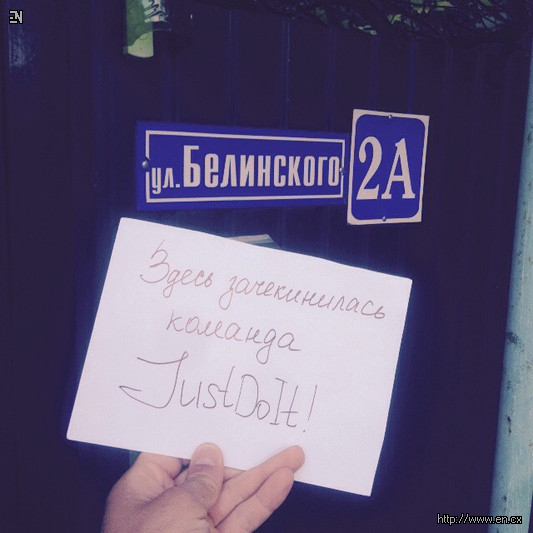 EN
ул. Белинского
2А
Здесь зачекинилась
команда
JustDoIt!
http://www.en.cx